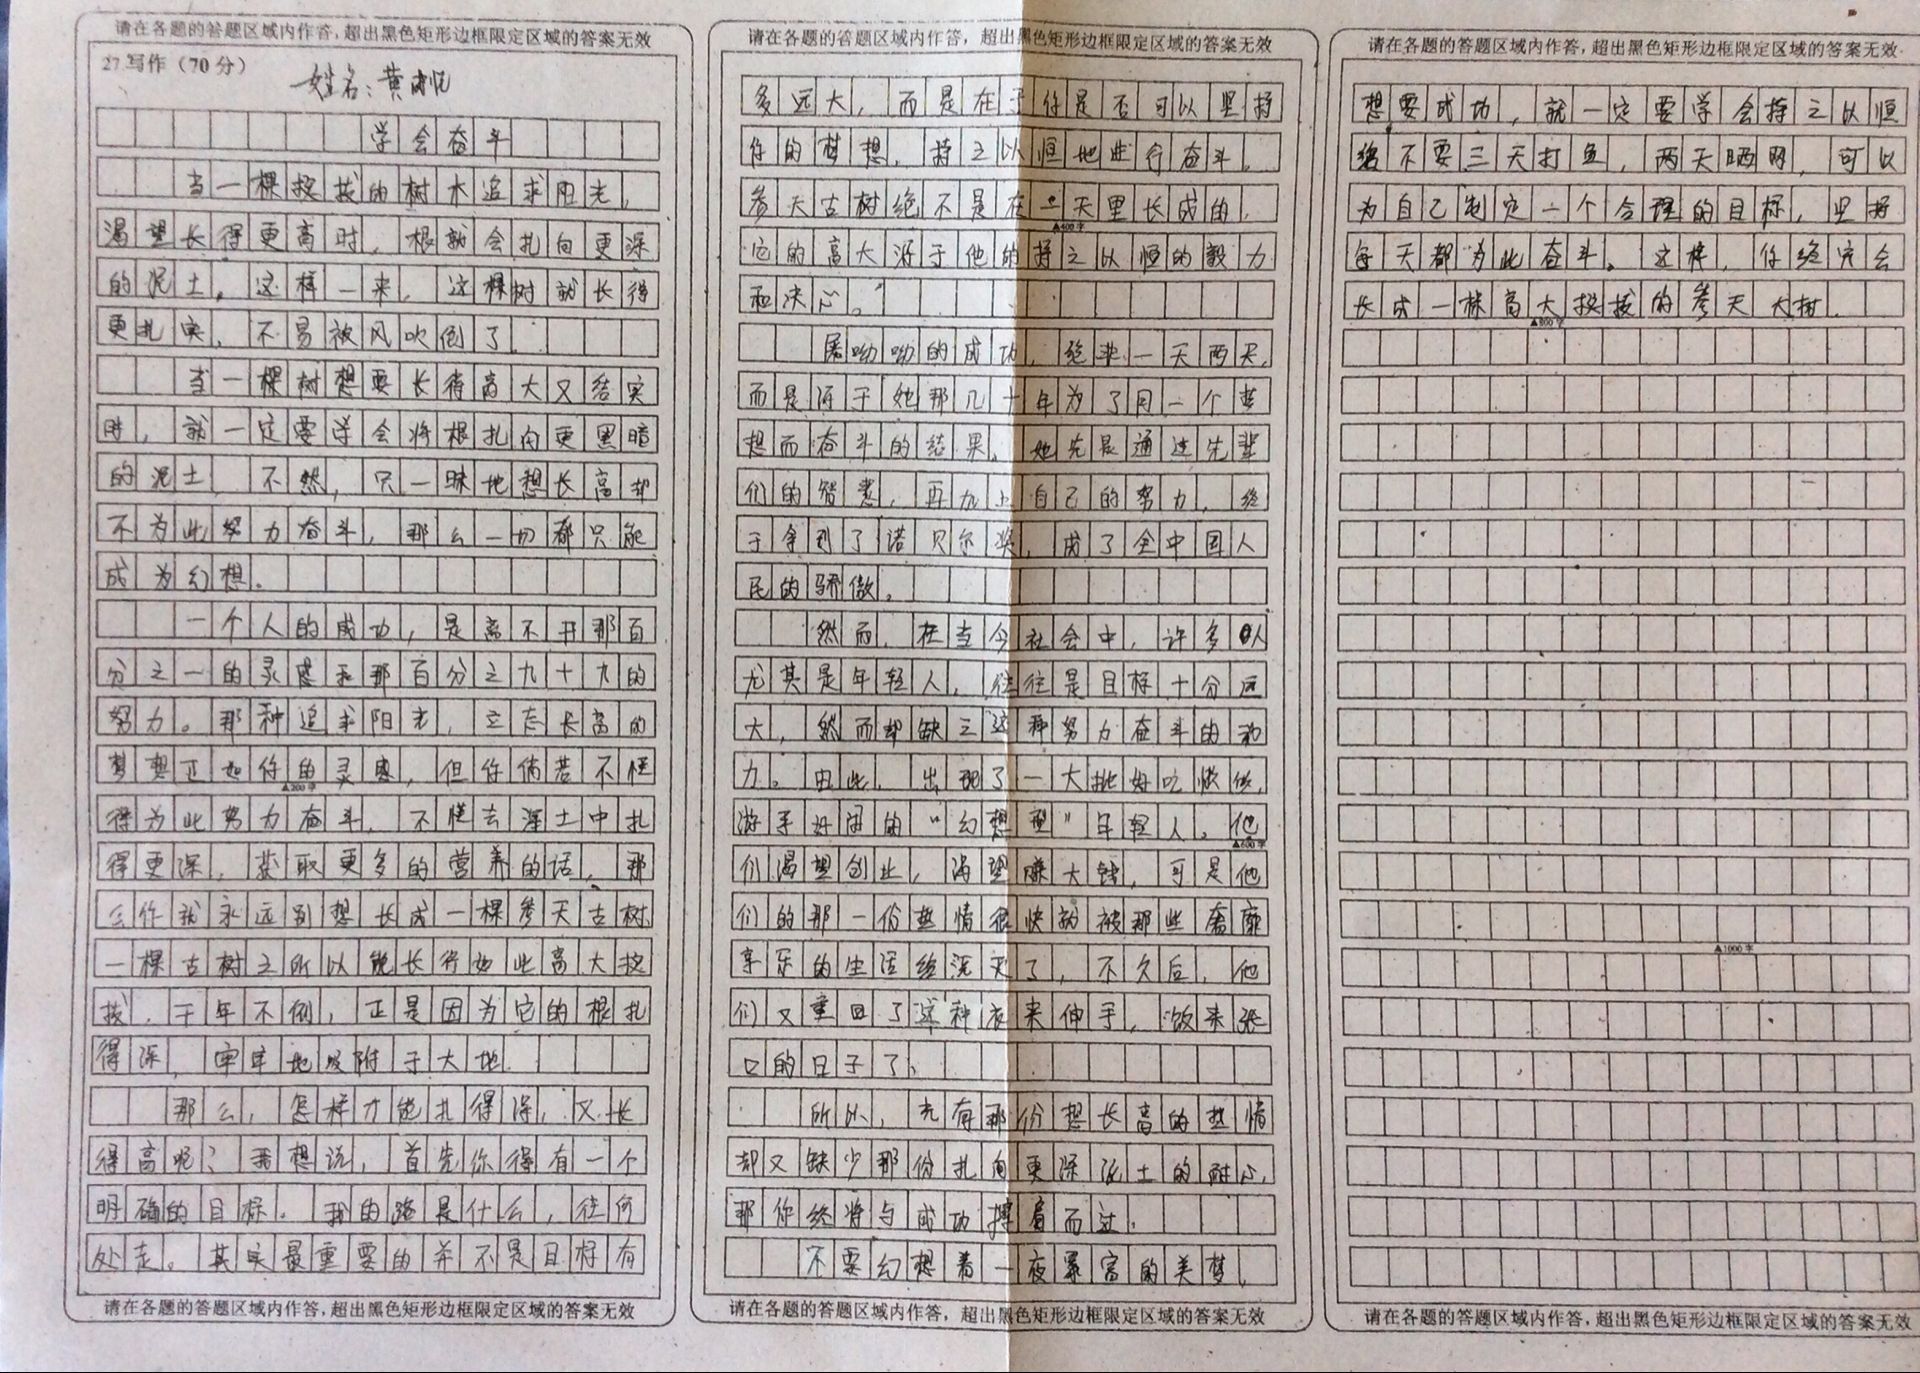 请在各题的答题区域内作答,超出黑色矩形边框限定区域的答案无效
27.写作(70分)
姓名:黄
学会奋斗
当一棵挺拔的树木追求阳光,
渴望长得更高时,根就会扎向更深
的泥土。这样一来,这棵树就长得
更扎实,不易被风吹倒了。
当一棵树想要长得高大又结实
时,就一定要学会将根扎向更黑暗
的泥土,不然,只一昧地想长高却
不为此努力奋斗,那么一切都只能
成为幻想。
一个人的成功,是离不开那百
分之一的灵感和那百分之九十九的
努力。那种追求阳光,立志长高的
梦想正如你的灵感,但你倘若不懂
得为此努力奋斗,不懂去深土中扎
得更深,获取更多的营养的话,那
么你就永远别想长成一棵参天古树
一棵古树之所以能长得如此高大挺
拔,千年不倒,正是因为它的根扎
得深,牢牢地吸附于大地。
那么,怎样才能扎得深,又长
得高呢?我想说,首先你得有一个
明确的目标。我的路是什么,往何
处走。其实最重要的并不是目标有
请在各题的答题区域内作答,超出黑色矩形边框限定区域的答案无效
请在各题的答题区域内作答,超出黑色矩形边框限定区域的答案无效
多远大,而是在于你是否可以坚持
你的梦想,持之以恒地进行奋斗。
参天古树绝不是在一天里长成的,
▲400字
它的高大源于他的持之以恒的毅力
和决心。
屠呦呦的成功,绝非一天两天,
而是源于她那几十年为了同一个梦
想而奋斗的结果,她先是通过先辈
们的智慧,再加上自己的努力,终
于拿到了诺贝尔奖,成了全中国人
民的骄傲。
然而,在当今社会中,许多人
尤其是年轻人,往往是目标十分远
大,然而却缺乏这种努力奋斗的动
力。由此,出现了一大批好吃懒做,
游手好闲的“幻想型”年轻人。他
▲600字
们渴望创业,渴望赚大钱,可是他
们的那一份热情很快就被那些奢靡
享乐的生活给浇灭了,不久后,他
们又重回了这种衣来伸手,饭来张
口的日子了。
所以,光有那份想长高的热情
却又缺少那份扎向更深泥土的耐心,
那你终将与成功擦肩而过。
不要幻想着一夜暴富的美梦,
请在各题的答题区域内作答,超出黑色矩形边框限定区域的答案无效
请在各题的答题区域内作答,超出黑色矩形边框限定区域的答案无效
想要成功,就一定要学会持之以恒
不要三天打鱼,两天晒网,可以
为自己制定一个合理的目标,坚持
每天都为此奋斗。这样,你终究会
长成一株高大挺拔的参天大树。
▲800字
▲1000字
请在各题的答题区域内作答,超出黑色矩形边框限定区域的答案无效